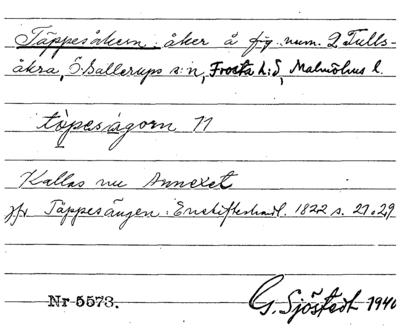 Täppesåkern: åker å fig. num. 2 Tulls-
åkra, Ö. Sallerups s:n, Frosta h:d, Malmöhus l.
Kallas nu Annexet
jfr Täppesängen: Enskifteshandl. 1822 s. 21 o. 29
Nr 5573.
G. Sjöstedt 1940